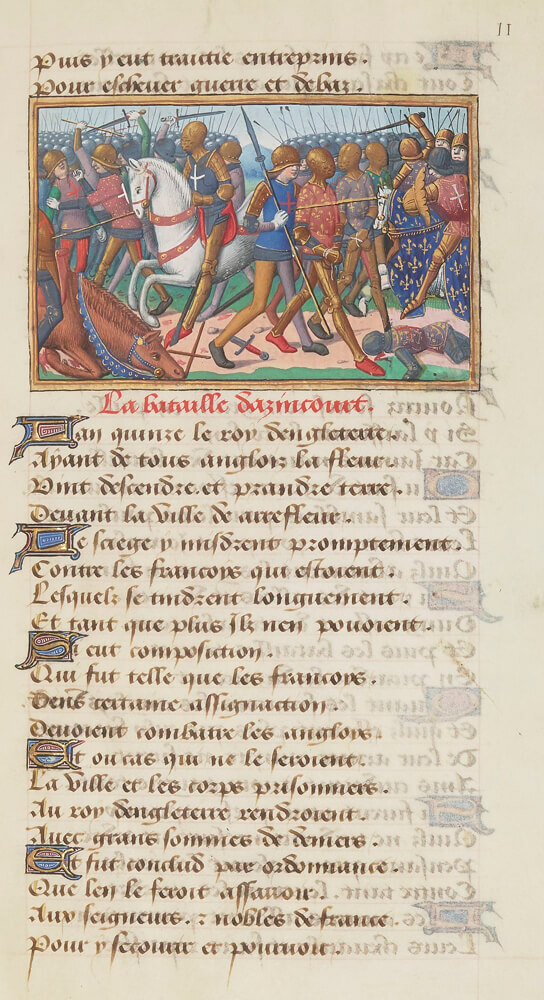 11
Puis y eut traictie entreprins.
Pour eschever guerre et debaz.
La bataille dazincourt.
Lan quinze le roy dengleterre.
Ayant de tous anglois la fleur.
Vint descendre et prandre terre.
Devant la ville de arrefleur.
Le siege y misdrent promptement.
Contre les francoys qui estoient.
Lesquelz se tindrent longuement.
Et tant que plus ilz nen povoient.
Si eut composicion.
Qui fut telle que les francoys.
Dens certaine assignacion.
Devoient combatre les anglois.
Et ou cas qui ne le feroient.
La ville et les corps prisonniers.
Au roy dengleterre rendroient.
Avec grans sommes de deniers.
Et fut conclud par ordonnance.
Que len le feroit assavoir.
Aux seigneurs et nobles de france.
Pour y secourir et pourvoir.